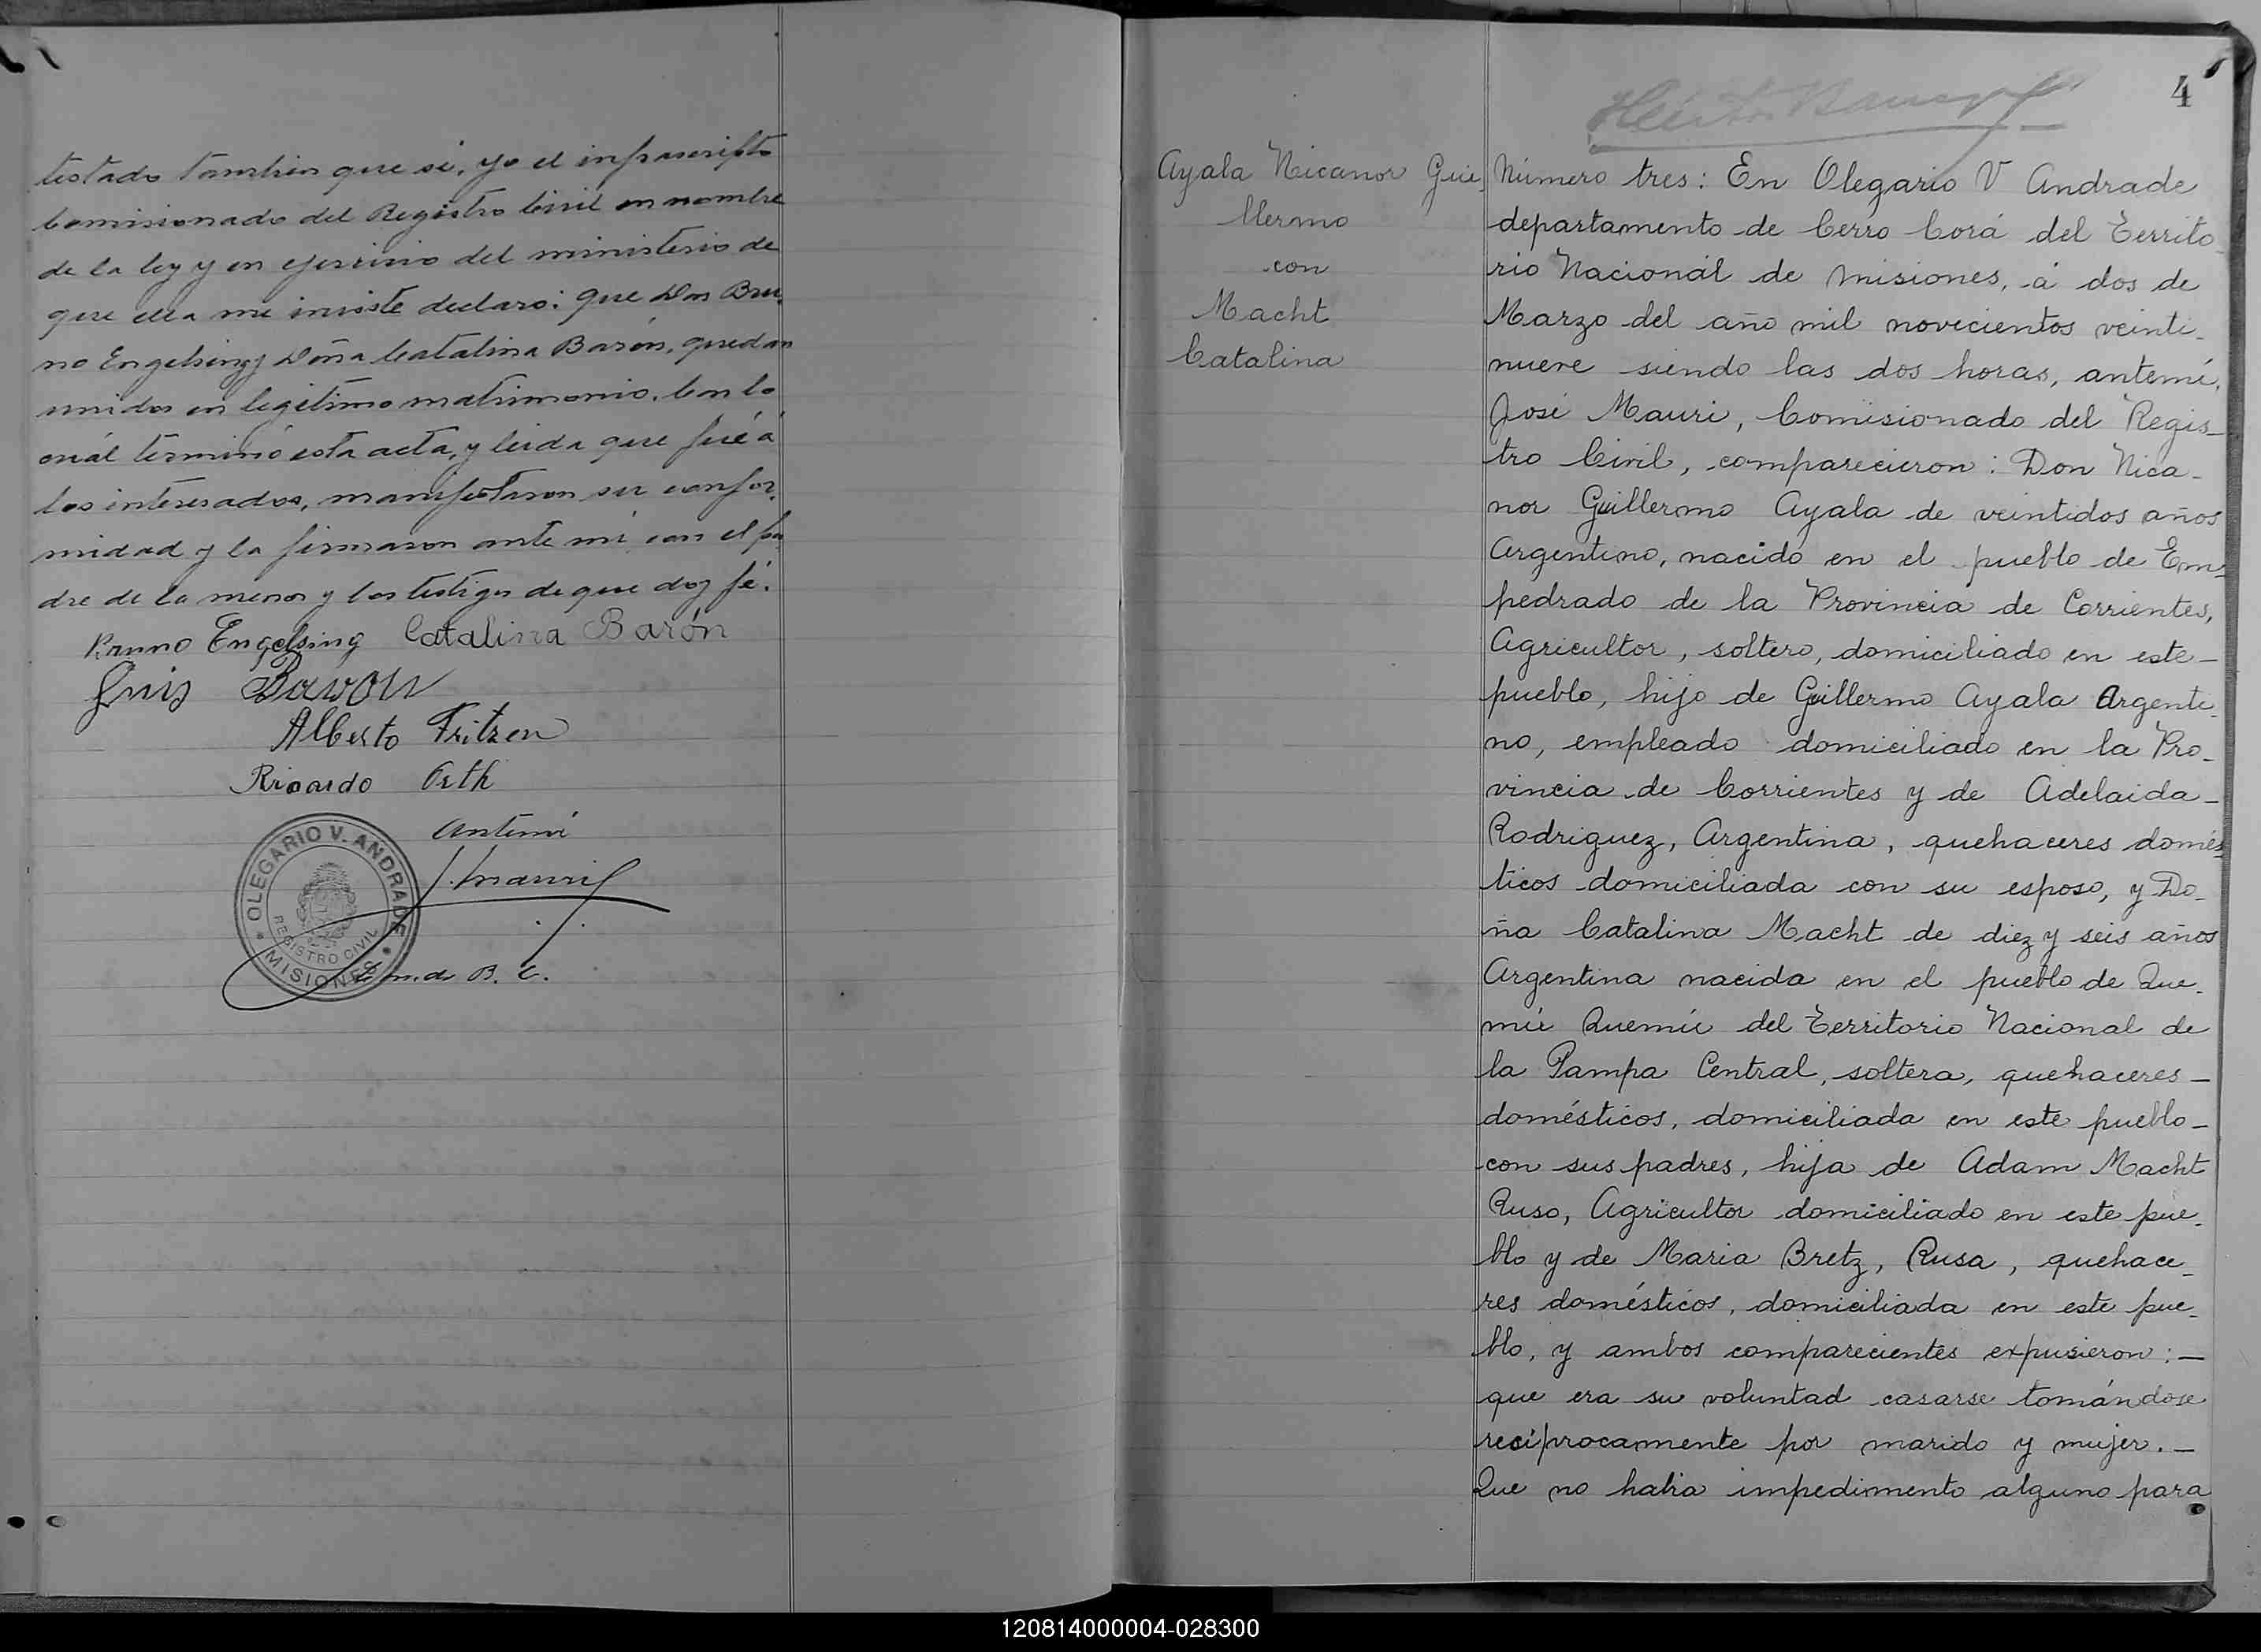 testado tambien que si, yo el infrascripto
Comisionado del Registro Civil en nombre
de la ley y en ejercicio del ministerio de
que ella me inviste declaro: que Don Bru-
no Engelsing y Doña Catalina Barón, quedan
unidos en legítimo matrimonio. Con lo
cuál terminó esta acta, y leida que fué á
los interesados, manifestaron su confor-
midad y la firmaron ante mi con el pa-
dre de la menor y los testigos de que doy fé.
Bruno Engelsing Catalina Barón
Luis Baron
Alberto Fritzen
Ricardo Orth
Antemi
J. Mauri
OLEGARIO V. ANDRADE
REGISTRO CIVIL
MISIONES
Com. de R. C.
4
Ayala Nicanor Gui-
llermo
con
Macht
Catalina
Número tres: En Olegario V Andrade
departamento de Cerro Corá del Territo-
rio Nacionál de Misiones, á dos de
Marzo del año mil novecientos veinti-
nueve siendo las dos horas, antemí,
José Mauri, Comisionado del Regis-
tro Civil, comparecieron: Don Nica-
nor Guillermo Ayala de veintidos años
Argentino, nacido en el pueblo de Em-
pedrado de la Provincia de Corrientes,
Agricultor, soltero, domiciliado en este-
pueblo, hijo de Guillermo Ayala Argenti-
no, empleado domiciliado en la Pro-
vincia de Corrientes y de Adelaida-
Rodriguez, Argentina, quehaceres domés-
ticos domiciliada con su esposo, y Do-
ña Catalina Macht de diez y seis años
Argentina nacida en el pueblo de Que-
mú Quemú del Territorio Nacional de
la Pampa Central, soltera, quehaceres-
domésticos, domiciliada en este pueblo-
con sus padres, hija de Adam Macht
Ruso, Agricultor domiciliado en este pue-
blo y de Maria Bretz, Rusa, quehace-
res domésticos, domiciliada en este pue-
blo, y ambos comparecientes expusieron:-
que era su voluntad casarse tomándose
recíprocamente por marido y mujer.-
Que no habia impedimento alguno para
120814000004-028300